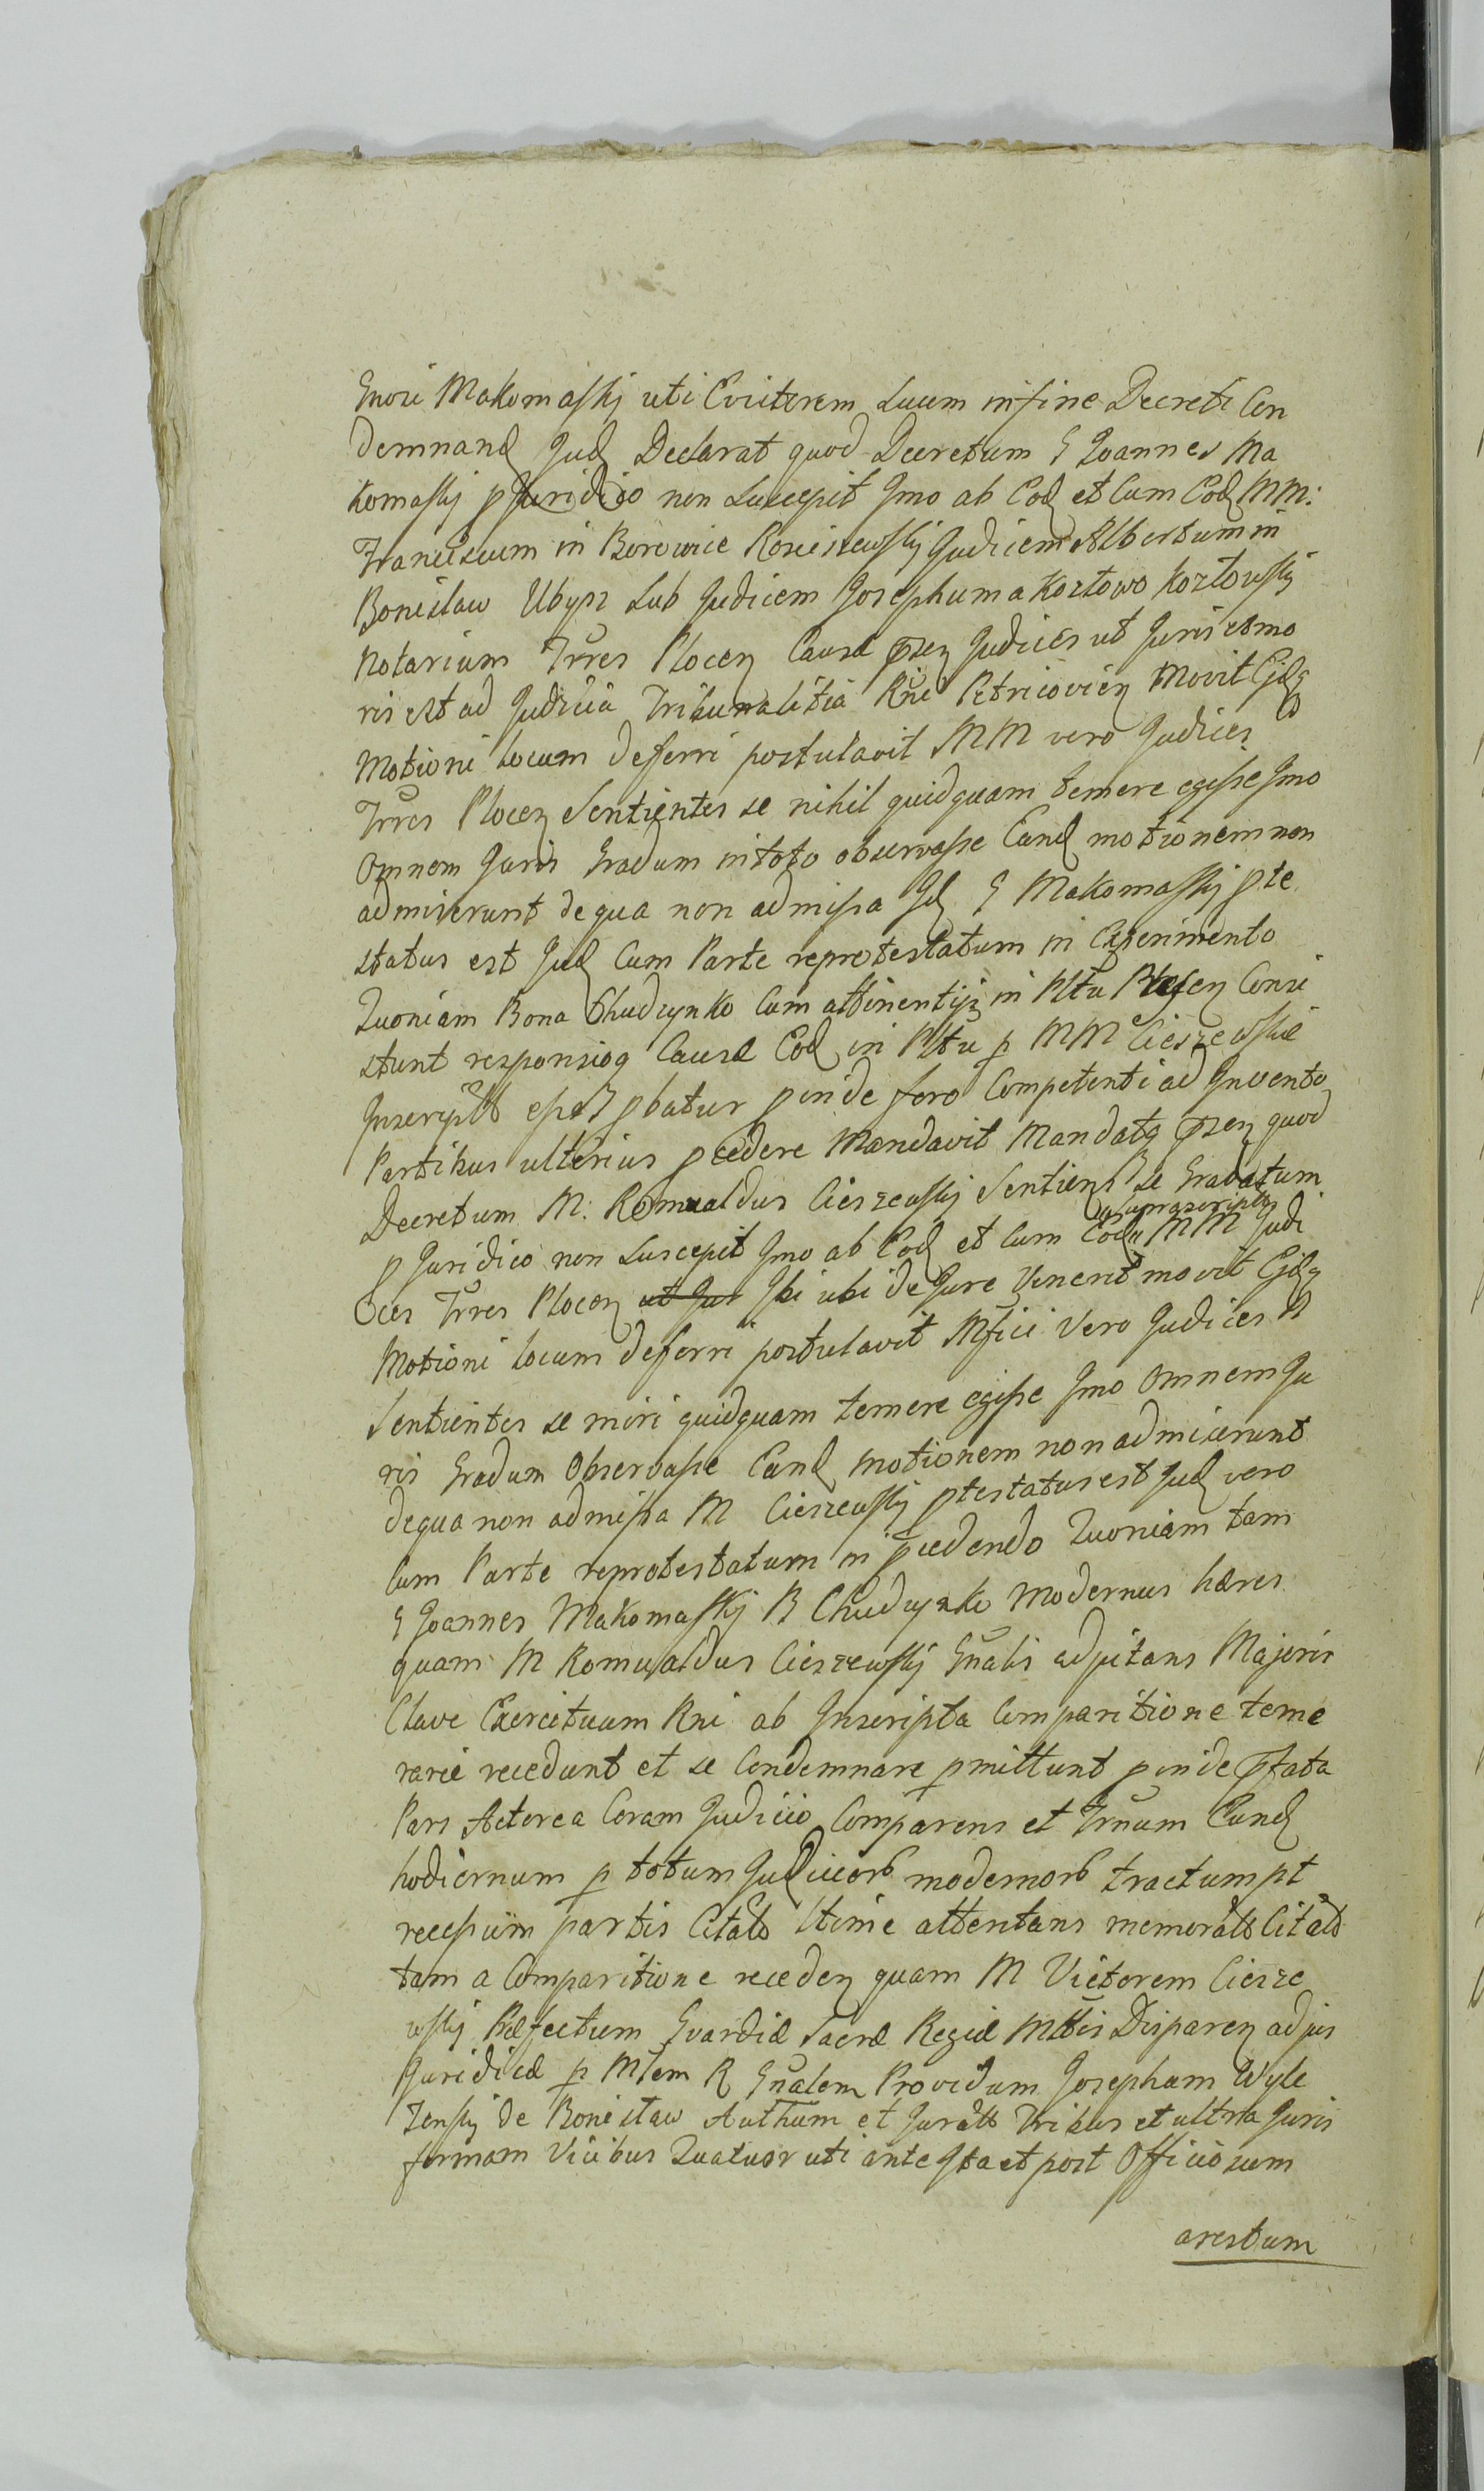 Gnosi Makomaskj uti Evictorem suum in fine Decreti Con
demnand Jud Declarat quod Decretum G Joannes Ma
komaskj p Juridico non suscepit Imo ab Eod et Cum Eod MM:
Franciscum in Borowice Rosciszewskj Judicem Albertum in
Bonislaw Ubysz Sub Judicem Josephum a Kozłowo Kozłowskj
Notarium Trres Plocen Causæ præsen Judices ut Juris et mo
ris est ad Judicia Tribunalitia Rni Petricovien Movit Ejdq
Motioni locum deferri postulavit MM vero Judices
Trres Plocen Sentientes se nihil quidquam temere egisse Imo
Omnem Juris Gradum in toto observasse Eand motionem non
admiserunt de qua non admissa Id G Makomaskj pte
status est Jud Cum Parte reprotestatum in Experimento
Quoniam Bona Chudzynko Cum attinentijs in Pltu Plocen Consi
stunt responsioq Causæ Eod in Pltu p MM Cieszewskie
Inscriptt esse pbatur pinde foro Competenti ad Invento
Partibus ulterius pcedere Mandavit Mandatq præsen quod
Decretum M. Romualdus Cieszewskj Sentiens se Gravatum
suprascriptis
p Juridico non suscepit Imo ab Eod et Cum Eod MM Judi
ces Trres Plocen ut Jur Ibi ubi de Jure Venerit movit Ejdq
Motioni locum deferri postulavit Mfici Vero Judices
Sentientes se miri quidquam temere egisse Imo Omnem Ju
ris Gradum Observasse Eand motionem non admiserunt
de qua non admissa M Cieszewskj ptestatus est Jud vero
Cum Parte reprotestatum in pcedendo Quoniam tam
G Joannes Makomaskj B Chudzynko Modernus hæres
quam M Romualdus Cieszewskj Gnalis adjutans Majoris
Clave Exercituum Rni ab Inscripta Comparitione teme
rarie recedunt et se Condemnare pmittunt pinde præfata
Pars Actorea Coram Judicio Comparens et Trnum Eund
hodiernum p totum Judicior modernor tractum pt
recessum partis Citatæ ltime attentans memoratt Citatt
tam a Comparitione receden quam M Victorem Ciesze
wskj Præfectum Gvardiæ Sacræ Regiæ Mttis Disparen ad jus
Juridicæ p Mtem R Gnalem Providum Josephum Wyle
zenskj de Bonislaw Authum et Juratt Tribus et ultra Juris
formam Vicibus Quatuor uti ante Ita et post Officiosum
arestum